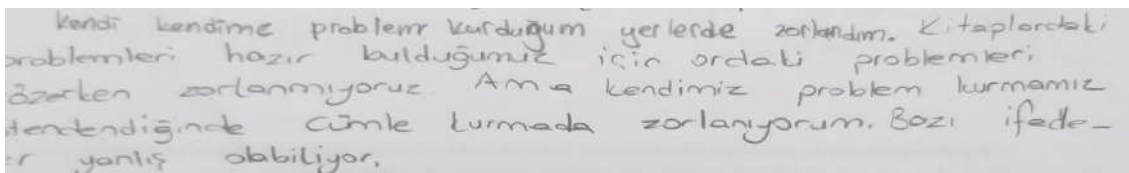 kendi kendime problem kurduğum yerlerde zorlandım. Kitaplardaki
problemleri hazır bulduğumuz için ordaki problemleri
özerken zorlanmıyoruz. Ama kendimiz problem kurmamız
stendendiğinde cümle kurmada zorlanıyorum. Bazı ifade-
er yanlış olabiliyor.